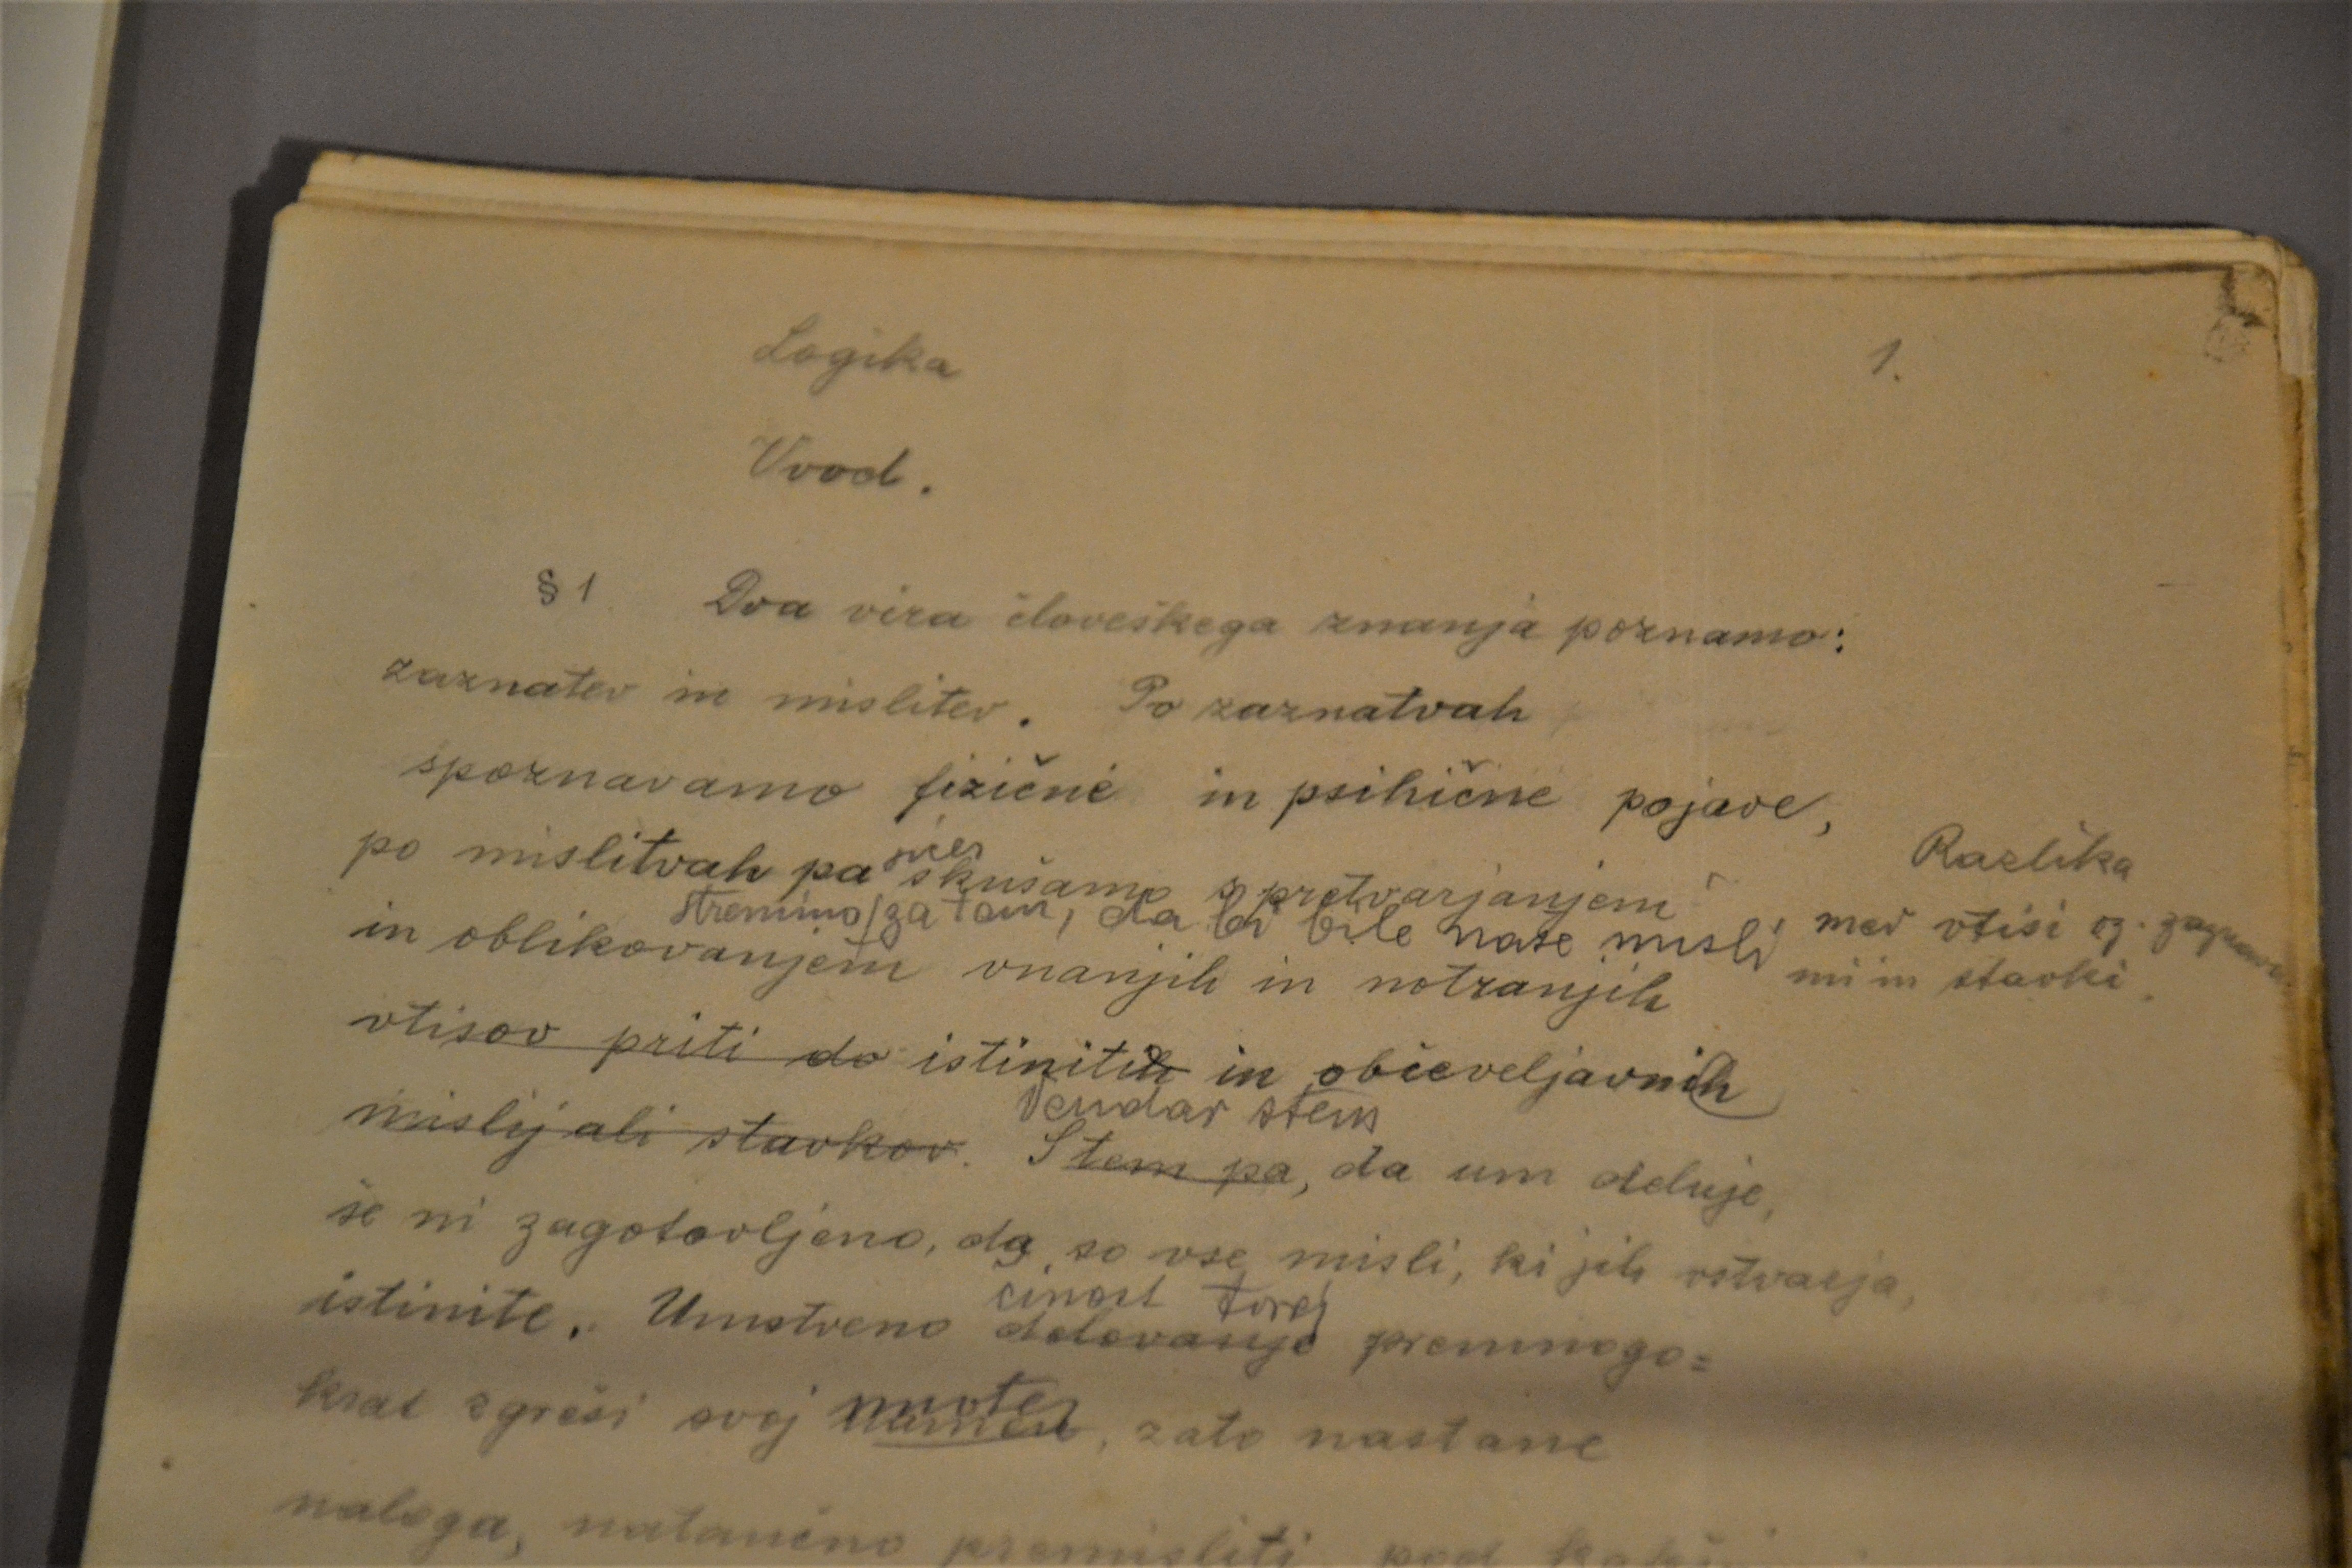 Logika
1.
Vvod.
§ 1 Dva vira človeškega znanja poznamo:
zaznatev in mislitev. Po zaznatvah
spoznavamo fizične in psihične pojave,
po mislitvah pa skušamo s pretvarjanjem
stremimo za tem, da bi bile naše misli
in oblikovanjem vnanjih in notranjih
Razlika
med vtisi oz.
mi in stavki.
vtisov priti do istinitih in občeveljavnih
Vendar stem
mislij ali stavkov. Stem pa, da um deluje,
še ni zagotovljeno, da so vse misli, ki jih vstvarja,
činost torej
istinite. Umstveno delovanje premnogo=
krat zgreši svoj namen, zato nastane
naloga, natančno premisliti, pod